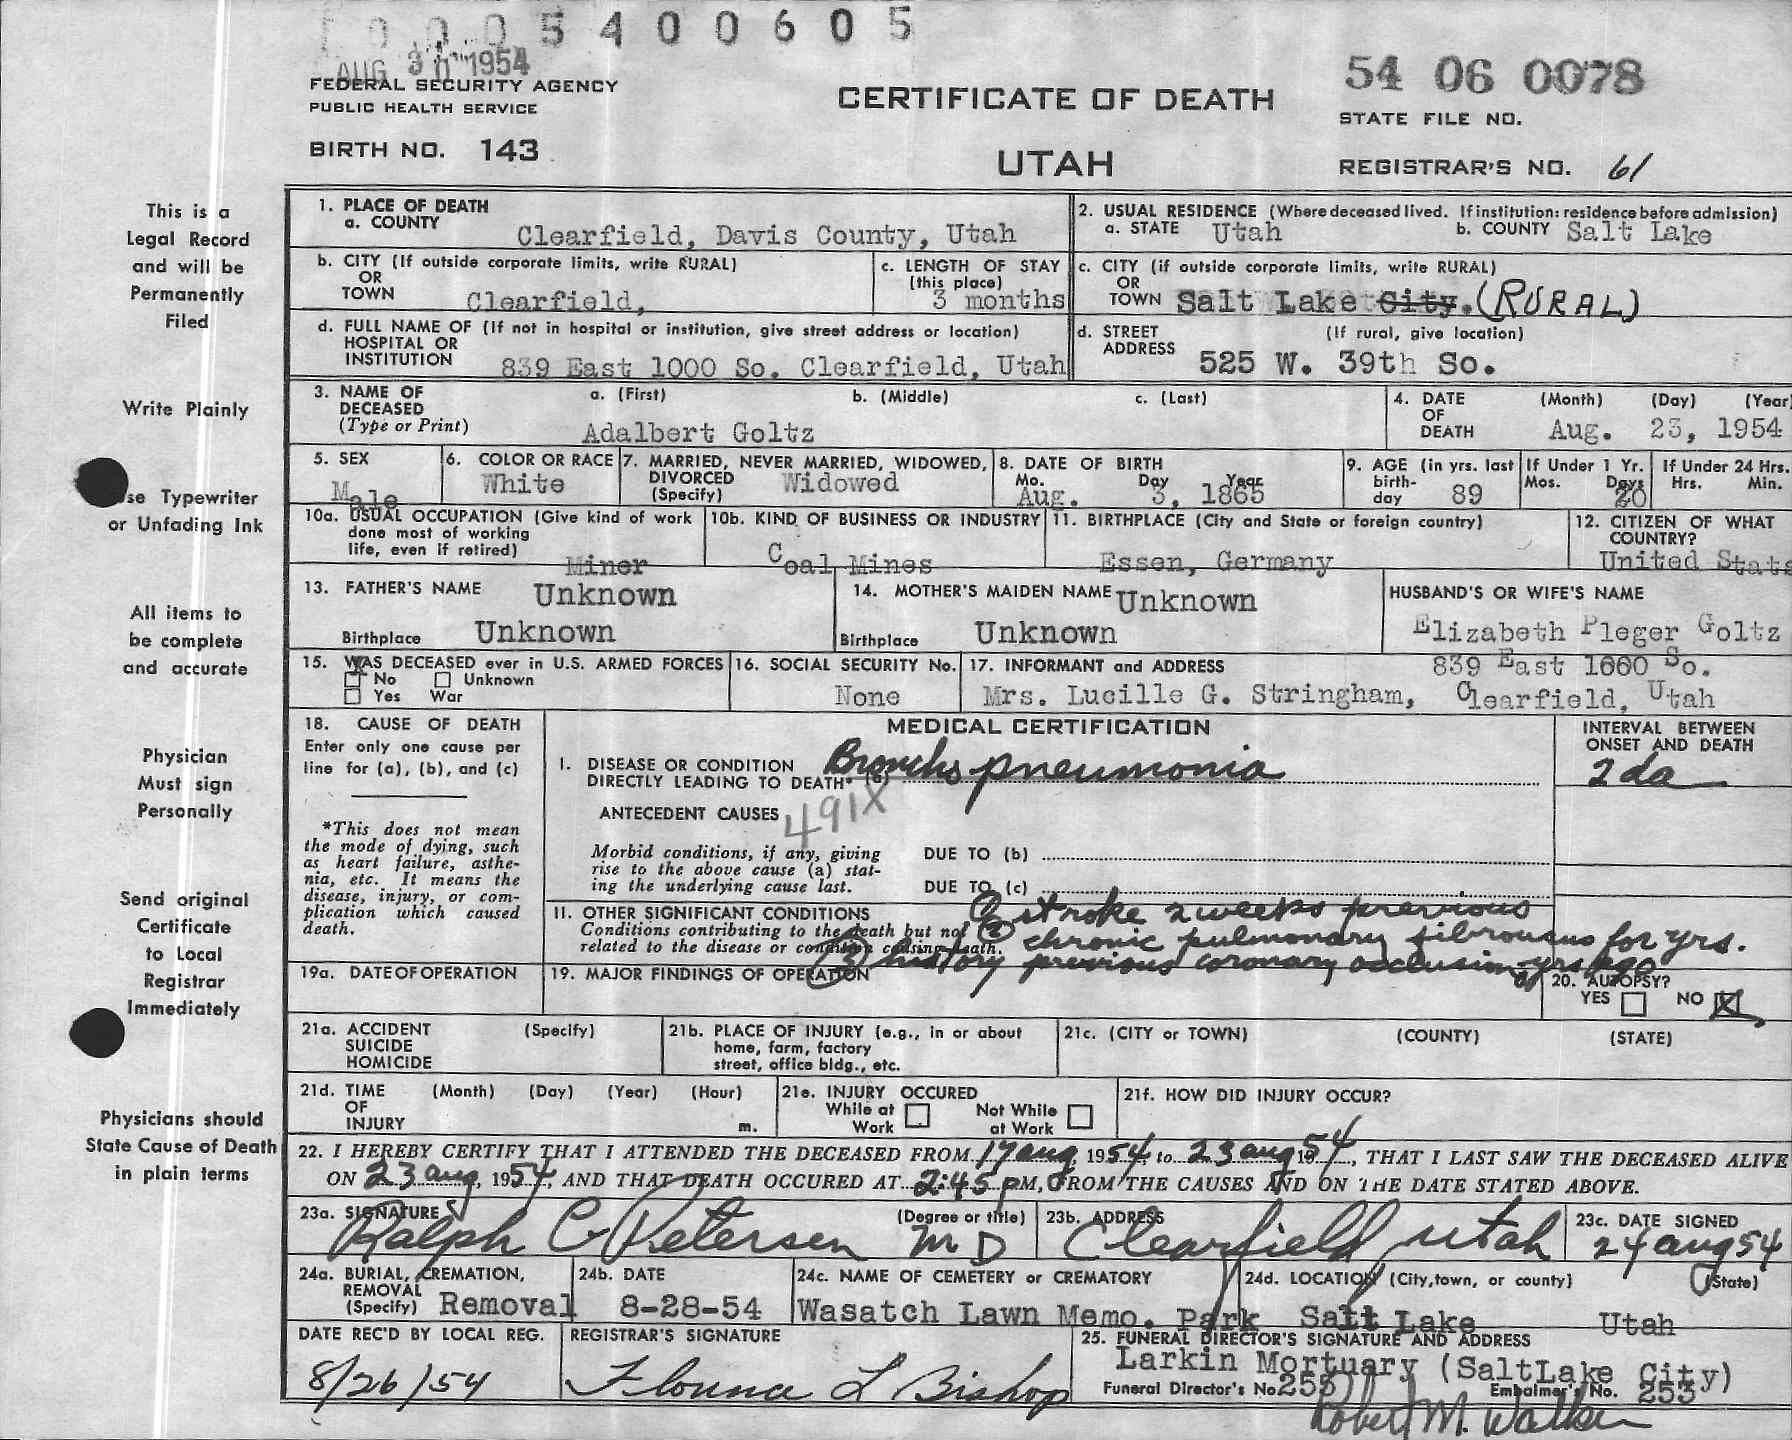 5400605
AUG 30 1954
FEDERAL SECURITY AGENCY
PUBLIC HEALTH SERVICE
BIRTH NO. 143
CERTIFICATE OF DEATH
UTAH
54 06 0078
STATE FILE NO.
REGISTRAR'S NO. 61
This is a
Legal Record
and will be
Permanently
Filed
Write Plainly
se Typewriter
or Unfading Ink
All items to
be complete
and accurate
Physician
Must sign
Personally
Send original
Certificate
to Local
Registrar
Immediately
Physicians should
State Cause of Death
in plain terms
1. PLACE OF DEATH
a. COUNTY Clearfield, Davis County, Utah
2. USUAL RESIDENCE (Where deceased lived. If institution: residence before admission)
a. STATE Utah b. COUNTY Salt Lake
b. CITY (If outside corporate limits, write RURAL)
OR
TOWN Clearfield,
c. LENGTH OF STAY
(this place)
3 months
c. CITY (if outside corporate limits, write RURAL)
OR
TOWN Salt Lake City. (RURAL)
d. FULL NAME OF (If not in hospital or institution, give street address or location)
HOSPITAL OR
INSTITUTION 839 East 1000 So. Clearfield, Utah
d. STREET (If rural, give location)
ADDRESS 525 W. 39th So.
3. NAME OF a. (First) b. (Middle) c. (Last)
DECEASED
(Type or Print) Adalbert Goltz
4. DATE (Month) (Day) (Year)
OF
DEATH Aug. 23, 1954
5. SEX
Male
6. COLOR OR RACE
White
7. MARRIED, NEVER MARRIED, WIDOWED,
DIVORCED Widowed
(Specify)
8. DATE OF BIRTH
Mo. Day Year
Aug. 3, 1865
9. AGE (in yrs. last
birth-
day 89
If Under 1 Yr.
Mos. Days
20
If Under 24 Hrs.
Hrs. Min.
10a. USUAL OCCUPATION (Give kind of work
done most of working
life, even if retired) Miner
10b. KIND OF BUSINESS OR INDUSTRY
Coal Mines
11. BIRTHPLACE (City and State or foreign country)
Essen, Germany
12. CITIZEN OF WHAT
COUNTRY?
United Stats
13. FATHER'S NAME Unknown
Birthplace Unknown
14. MOTHER'S MAIDEN NAME Unknown
Birthplace Unknown
HUSBAND'S OR WIFE'S NAME
Elizabeth Pleger Goltz
15. WAS DECEASED ever in U.S. ARMED FORCES
No Unknown
Yes War
16. SOCIAL SECURITY No.
None
17. INFORMANT and ADDRESS 839 East 1000 So.
Mrs. Lucille G. Stringham, Clearfield, Utah
18. CAUSE OF DEATH
Enter only one cause per
line for (a), (b), and (c)
*This does not mean
the mode of dying, such
as heart failure, asthe-
nia, etc. It means the
disease, injury, or com-
plication which caused
death.
MEDICAL CERTIFICATION
INTERVAL BETWEEN
ONSET AND DEATH
I. DISEASE OR CONDITION
DIRECTLY LEADING TO DEATH* (a) Broncho pneumonia 2 da
ANTECEDENT CAUSES 491X
Morbid conditions, if any, giving
rise to the above cause (a) stat-
ing the underlying cause last.
DUE TO (b)
DUE TO (c)
II. OTHER SIGNIFICANT CONDITIONS
Conditions contributing to the death but not
related to the disease or condition causing death.
stroke 2 weeks previous
(2) chronic pulmonary fibrousus for yrs.
(3) history previous coronary occlusion yrs ago
19a. DATE OF OPERATION
19. MAJOR FINDINGS OF OPERATION
20. AUTOPSY?
YES NO X
21a. ACCIDENT (Specify)
SUICIDE
HOMICIDE
21b. PLACE OF INJURY (e.g., in or about
home, farm, factory
street, office bldg., etc.
21c. (CITY or TOWN) (COUNTY) (STATE)
21d. TIME (Month) (Day) (Year) (Hour)
OF
INJURY m.
21e. INJURY OCCURED
While at Work Not While at Work
21f. HOW DID INJURY OCCUR?
22. I HEREBY CERTIFY THAT I ATTENDED THE DECEASED FROM 17 aug, 1954, to 23 aug 1954, THAT I LAST SAW THE DECEASED ALIVE
ON 23 aug, 1954, AND THAT DEATH OCCURED AT 2:45 PM, FROM THE CAUSES AND ON THE DATE STATED ABOVE.
23a. SIGNATURE (Degree or title)
Ralph C Petersen M D
23b. ADDRESS
Clearfield, Utah
23c. DATE SIGNED
24 aug 54
24a. BURIAL, CREMATION,
REMOVAL
(Specify) Removal
24b. DATE
8-28-54
24c. NAME OF CEMETERY or CREMATORY
Wasatch Lawn Memo. Park
24d. LOCATION (City, town, or county) (State)
Salt Lake Utah
DATE REC'D BY LOCAL REG.
8/26/54
REGISTRAR'S SIGNATURE
Flounna L Bishop
25. FUNERAL DIRECTOR'S SIGNATURE AND ADDRESS
Larkin Mortuary (SaltLake City)
Funeral Director's No 253 Embalmer's No. 253
Robert M. Walker